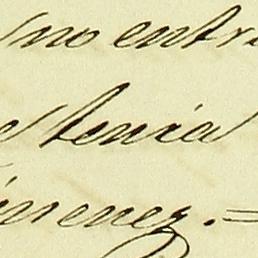 no entr
tenia
imenez.=